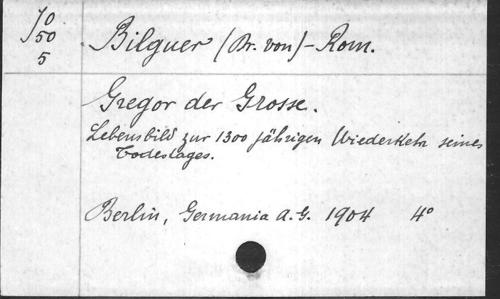 J0
50
5
Bilguer (Dr. von) - Rom.
Gregor der Grosse.
Lebensbild zur 1300 jährigen Wiederkehr seines
Todestages.
Berlin, Germania A.G. 1904 4°